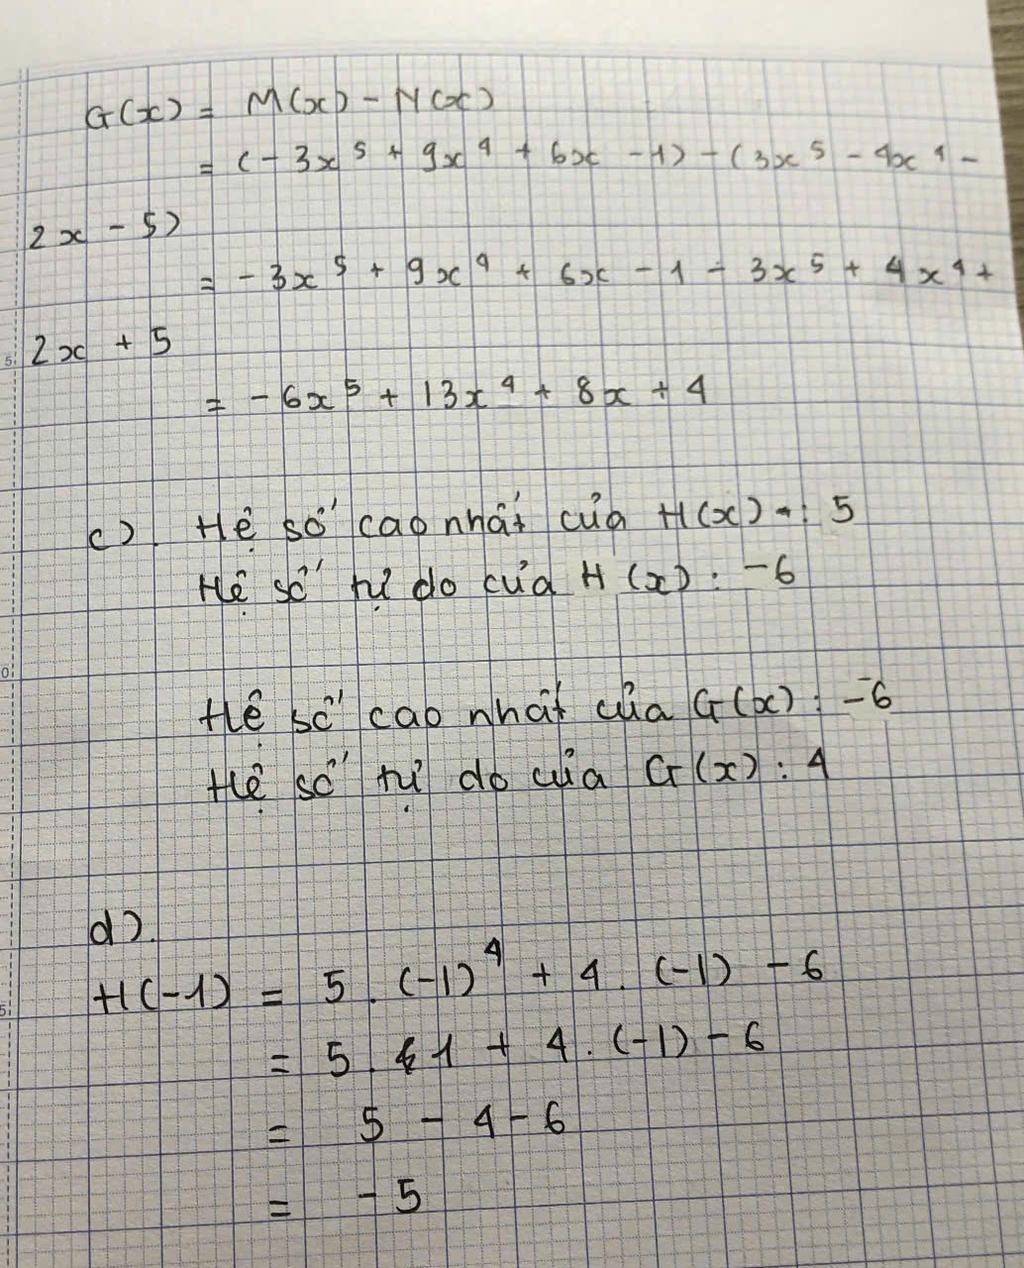 G(x) = M(x) - N(x)
= (-3x⁵ + 9x⁴ + 6x - 1) - (3x⁵ - 4x⁴ -
2x - 5)
= -3x⁵ + 9x⁴ + 6x - 1 - 3x⁵ + 4x⁴ +
2x + 5
= -6x⁵ + 13x⁴ + 8x + 4
c). Hệ số cao nhất của H(x) : 5
Hệ số tự do của H(x) : -6
Hệ số cao nhất của G(x) : -6
Hệ số tự do của G(x) : 4
d).
H(-1) = 5 . (-1)⁴ + 4 . (-1) - 6
= 5 . 1 + 4 . (-1) - 6
= 5 - 4 - 6
= -5